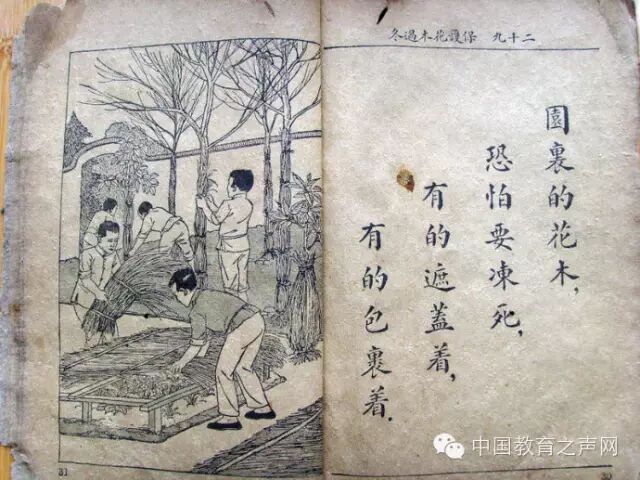 二十九 保護花木過冬
園裏的花木，
恐怕要凍死，
有的遮蓋着，
有的包裹着．
30
31
中国教育之声网